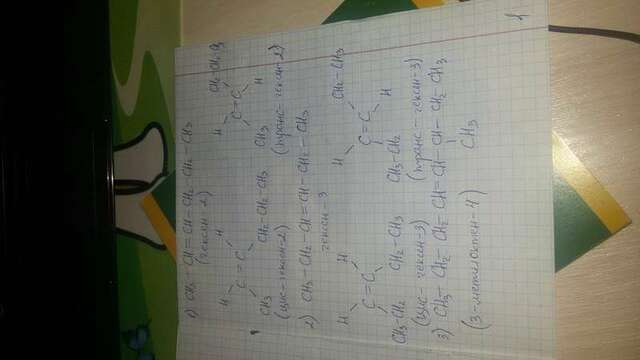 1) CH3 - CH = CH - CH2 - CH2 - CH3
(гексен-2)
H H
C = C
CH3 CH2-CH2-CH3
(цис-гексен-2)
H CH2-CH2-CH3
C = C
CH3 H
(транс-гексен-2)
2) CH3 - CH2 - CH = CH - CH2 - CH3
гексен-3
H H
C = C
CH3-CH2 CH2-CH3
(цис-гексен-3)
H CH2-CH3
C = C
CH3-CH2 H
(транс-гексен-3)
3) CH3 - CH2 - CH2 - CH = CH - CH - CH2 - CH3
CH3
(3-метилоктен-4)